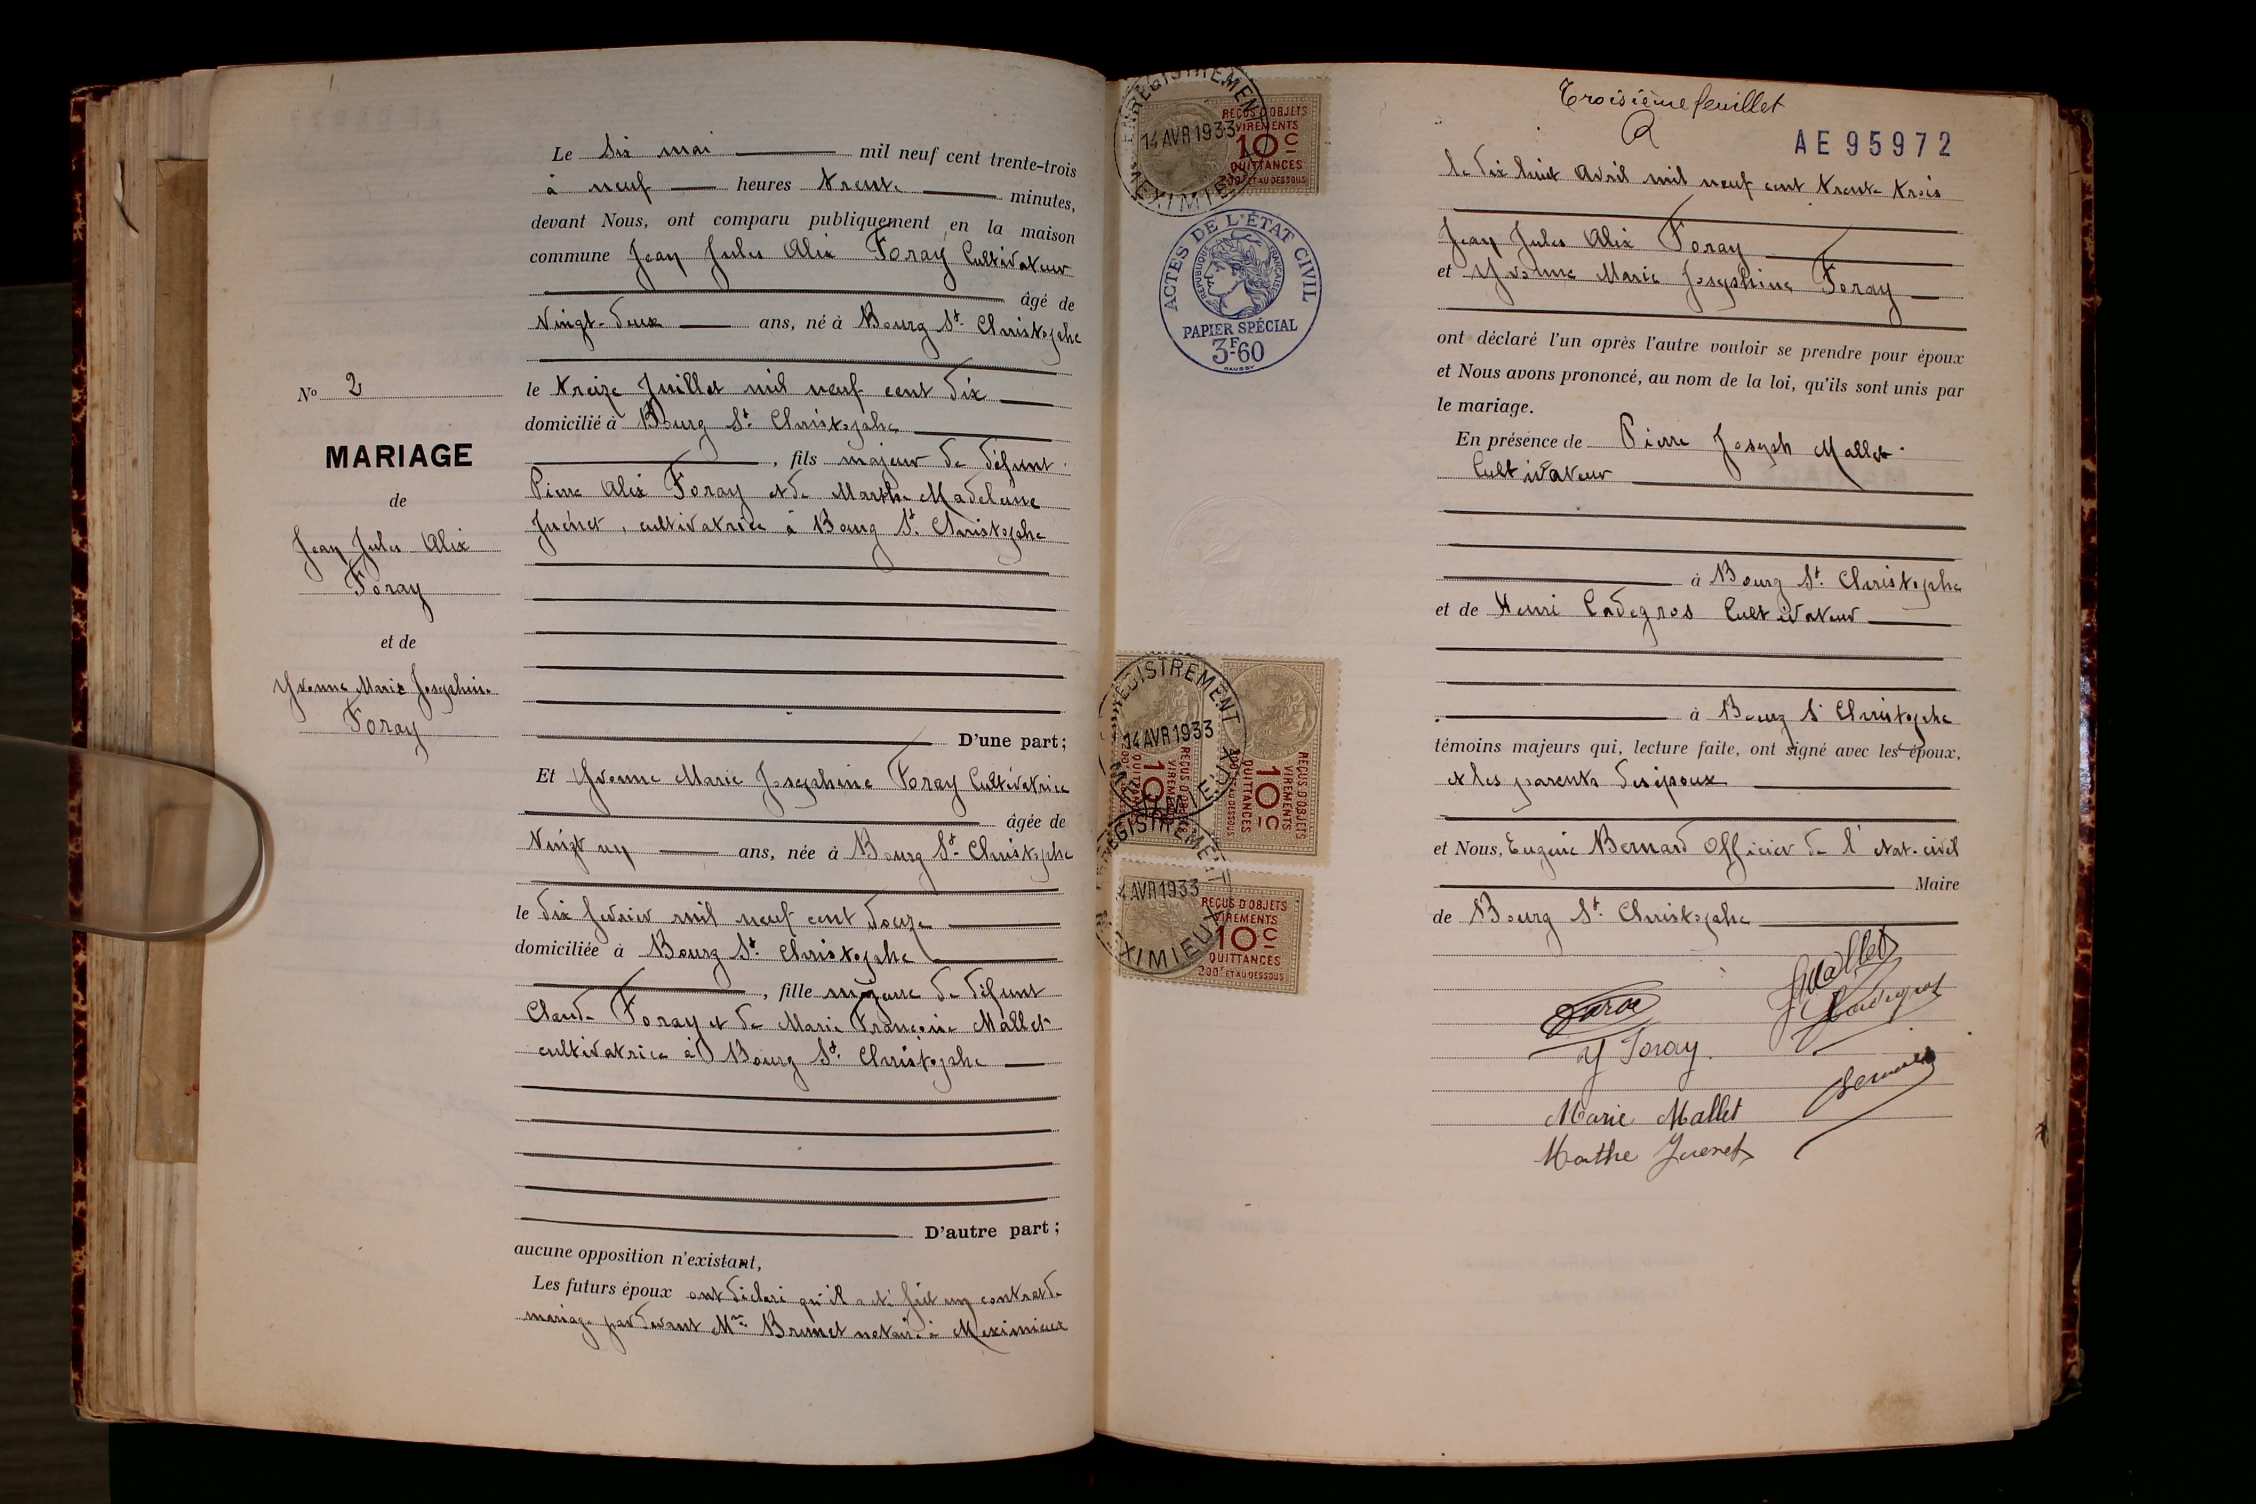 Le Six mai mil neuf cent trente-trois
à neuf heures trente minutes,
devant Nous, ont comparu publiquement en la maison
commune Jean Jules Alix Foray Cultivateur
âgé de
Vingt-deux ans, né à Bourg St. Christophe
le treize Juillet mil neuf cent dix
domicilié à Bourg St. Christophe
, fils majeur de défunt
Pierre Alix Foray et de Marthe Madeleine
Juénet, cultivatrice à Bourg St. Christophe
D'une part;
Et Yvonne Marie Josephine Foray Cultivatrice
âgée de
Vingt un ans, née à Bourg St. Christophe
le dix fevrier mil neuf cent douze
domiciliée à Bourg St. Christophe
, fille majeure de défunt
Claude Foray et de Marie Françoise Mallet
cultivatrice à Bourg St. Christophe
D'autre part;
aucune opposition n'existant,
Les futurs époux ont déclaré qu'il a été fait un contrat de
mariage par devant Me Brunet notaire à Meximieux
No 2
MARIAGE
de
Jean Jules Alix
Foray
et de
Yvonne Marie Josephine
Foray
ENREGISTREMENT
14 AVR 1933
MEXIMIEUX
REÇUS D'OBJETS
VIREMENTS
10c
QUITTANCES
200F ET AU DESSOUS
ACTES DE L'ÉTAT CIVIL
RÉPUBLIQUE FRANÇAISE
PAPIER SPÉCIAL
3F60
ENREGISTREMENT
14 AVR 1933
MEXIMIEUX
REÇUS D'OBJETS
VIREMENTS
10c
QUITTANCES
REÇUS D'OBJETS
VIREMENTS
10c
QUITTANCES
200F ET AU DESSOUS
ENREGISTREMENT
14 AVR 1933
MEXIMIEUX
REÇUS D'OBJETS
VIREMENTS
10c
QUITTANCES
200F ET AU DESSOUS
Troisième feuillet
AE 95972
le dix huit Avril mil neuf cent trente trois
Jean Jules Alix Foray
et Yvonne Marie Josephine Foray
ont déclaré l'un après l'autre vouloir se prendre pour époux
et Nous avons prononcé, au nom de la loi, qu'ils sont unis par
le mariage.
En présence de Pierre Joseph Mallet
Cultivateur
à Bourg St. Christophe
et de Henri Cadegros Cultivateur
à Bourg St Christophe
témoins majeurs qui, lecture faite, ont signé avec les époux,
et les parents des époux
et Nous, Eugène Bernard Officier de l'état-civil
Maire
de Bourg St. Christophe
Mallet
Foray
Cadegros
Y Foray
Bernard
Marie Mallet
Marthe Juenet